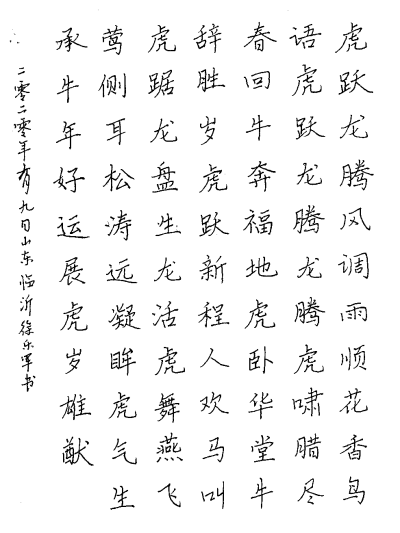 虎跃龙腾风调雨顺花香鸟
语虎跃龙腾龙腾虎啸腊尽
春回牛奔福地虎卧华堂牛
辞胜岁虎跃新程人欢马叫
虎踞龙盘生龙活虎舞燕飞
莺侧耳松涛远凝眸虎气生
承牛年好运展虎岁雄猷
二零二零年有九日山东临沂徐乐军书